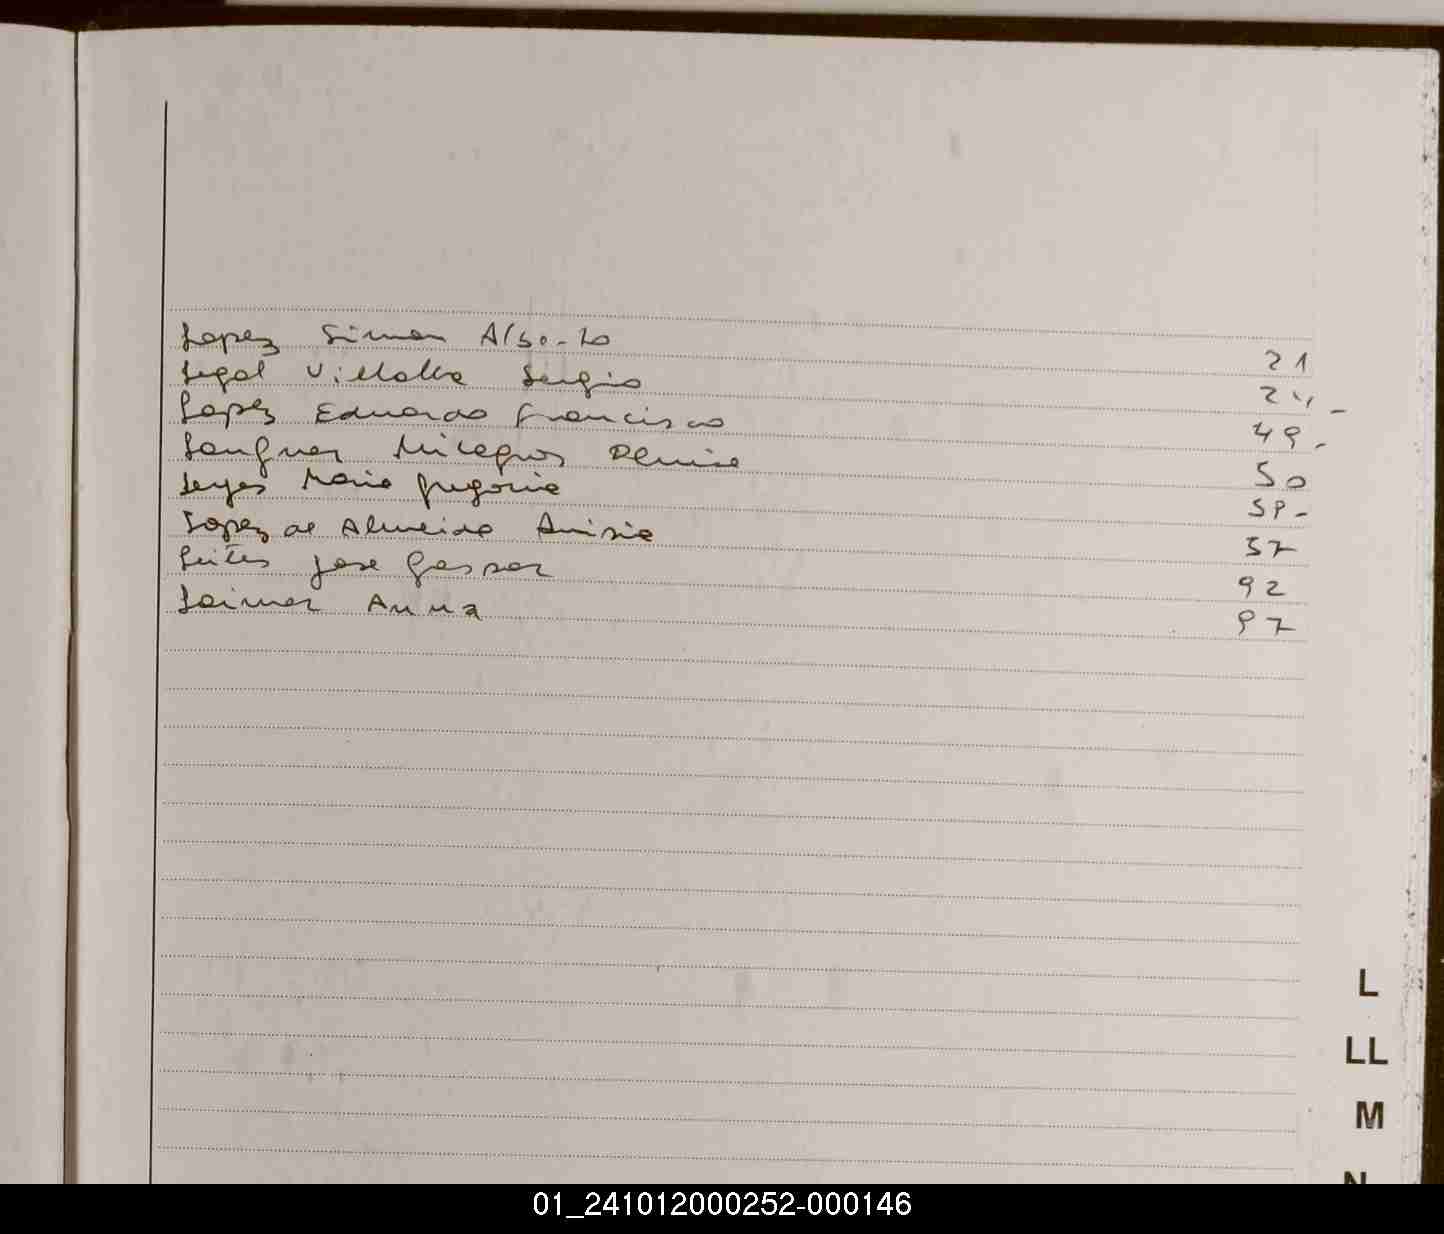 Lopez Simon Alberto 21
Legal Villalba Sergio 24 -
Lopez Eduardo Francisco 49 -
Milagros Denise 50
Maria Gregoria 58 -
Lopez de Almeida Anisia 57
Leites Jose Gaspar 92
Laimer Anna 97
L
LL
M
N
01_241012000252-000146